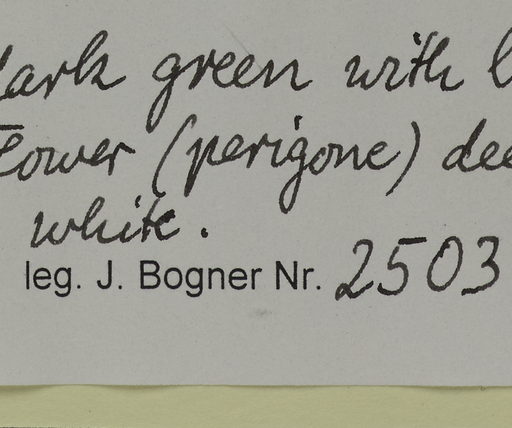 dark green with
Flower (perigone)
white.
leg. J. Bogner Nr. 2503